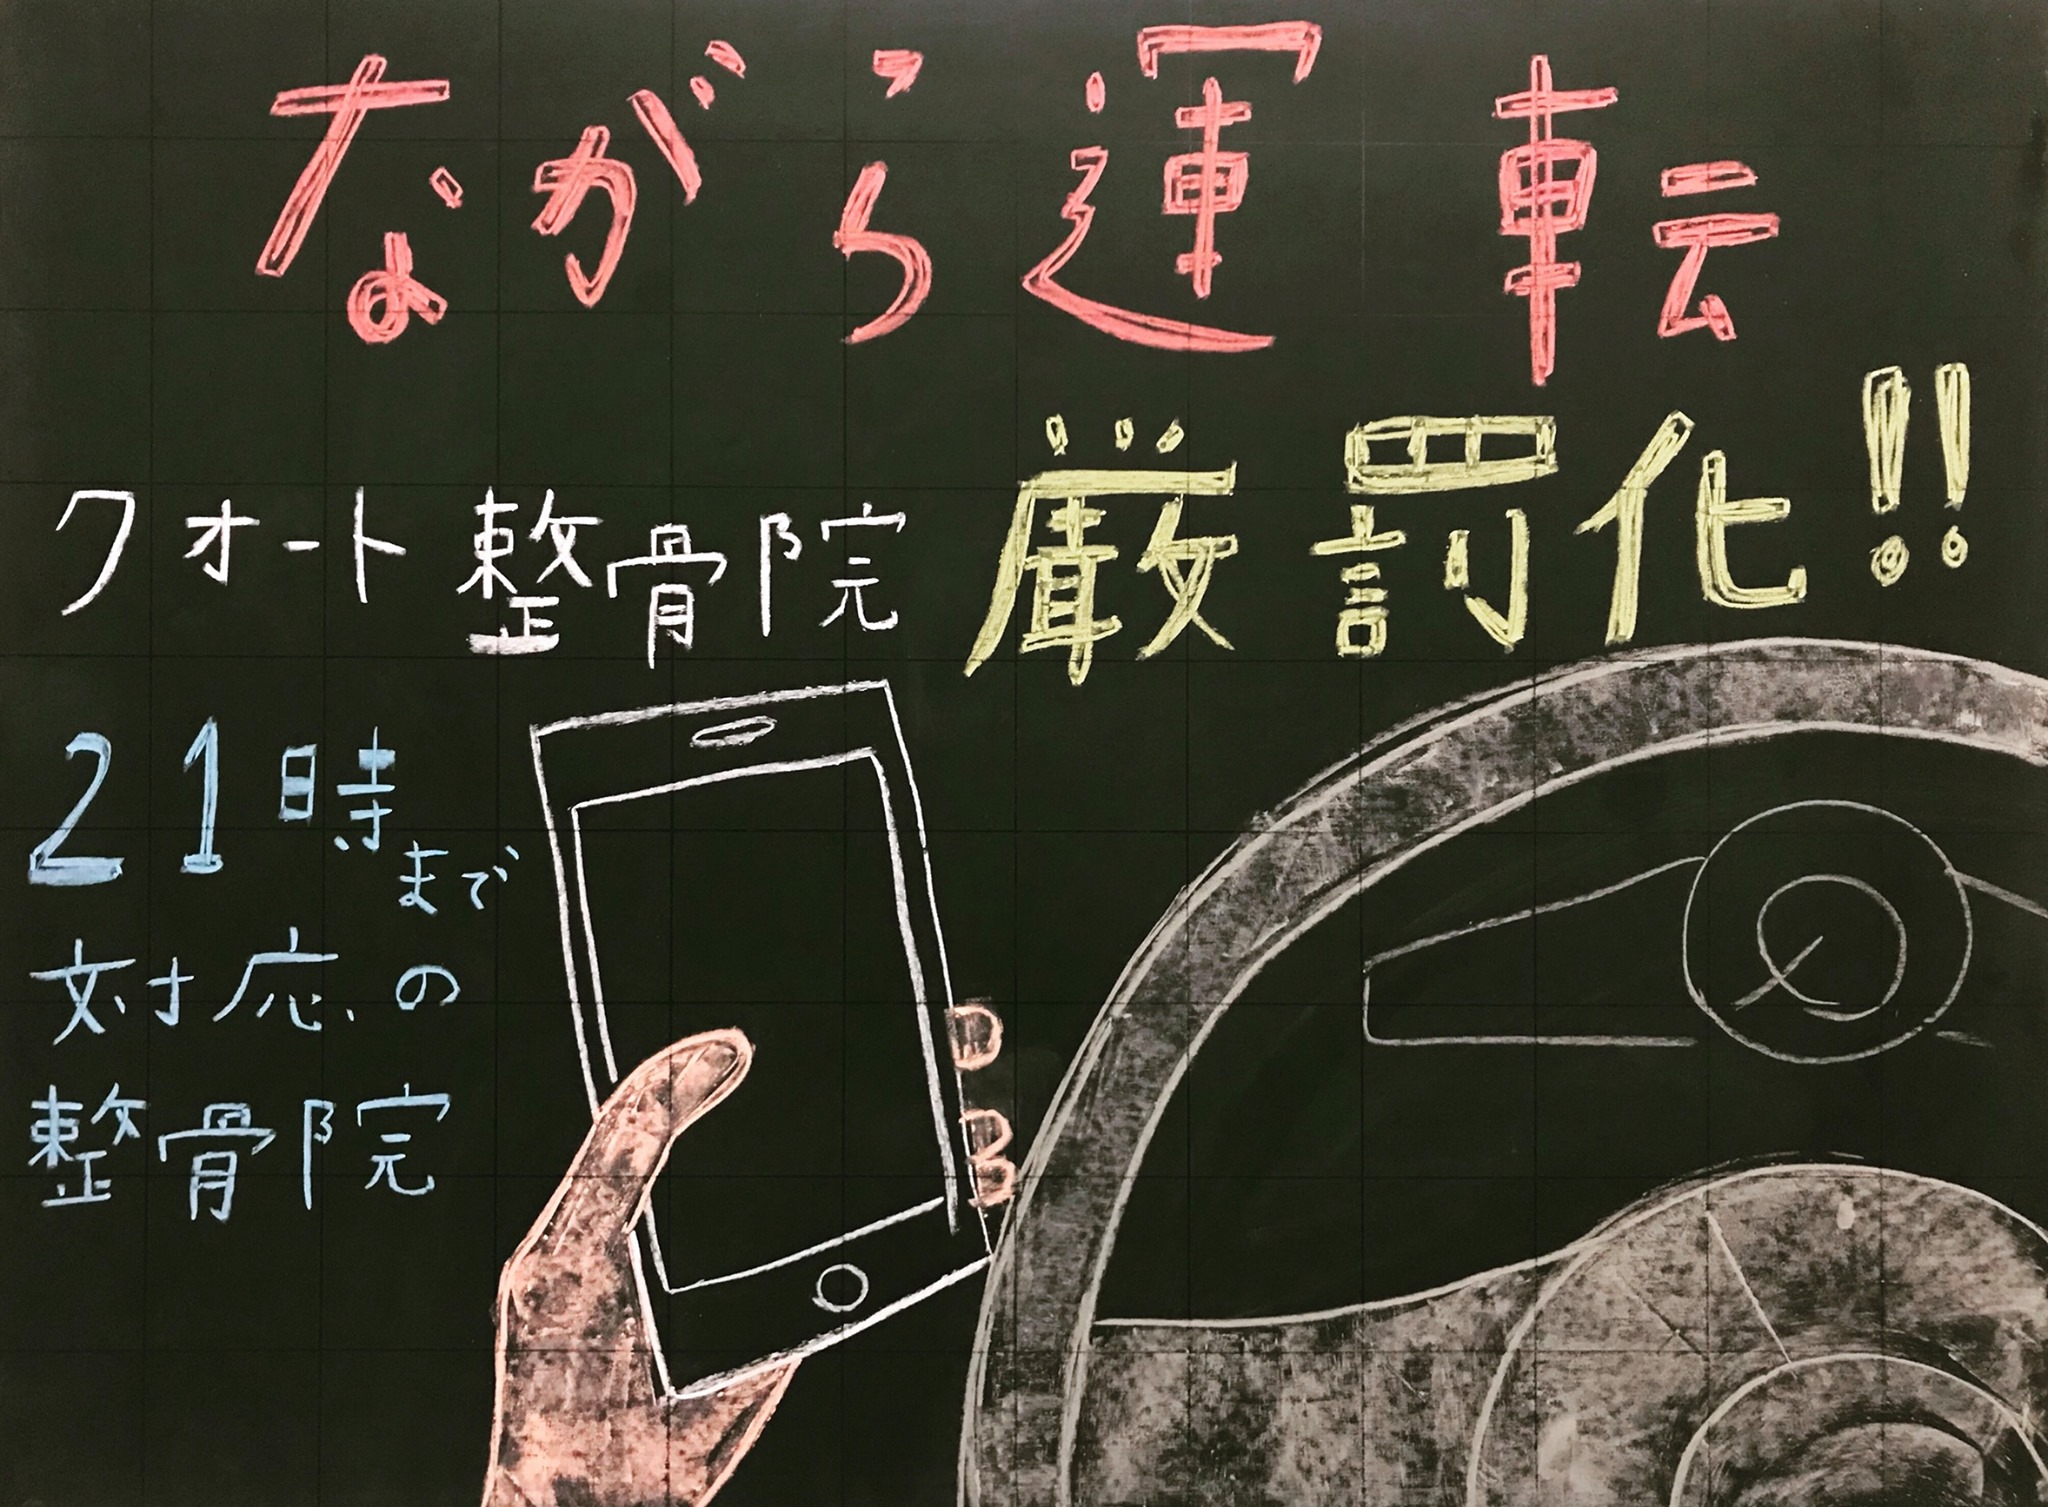 ながら運転
厳罰化!!
クオート整骨院
21時まで
対応の
整骨院